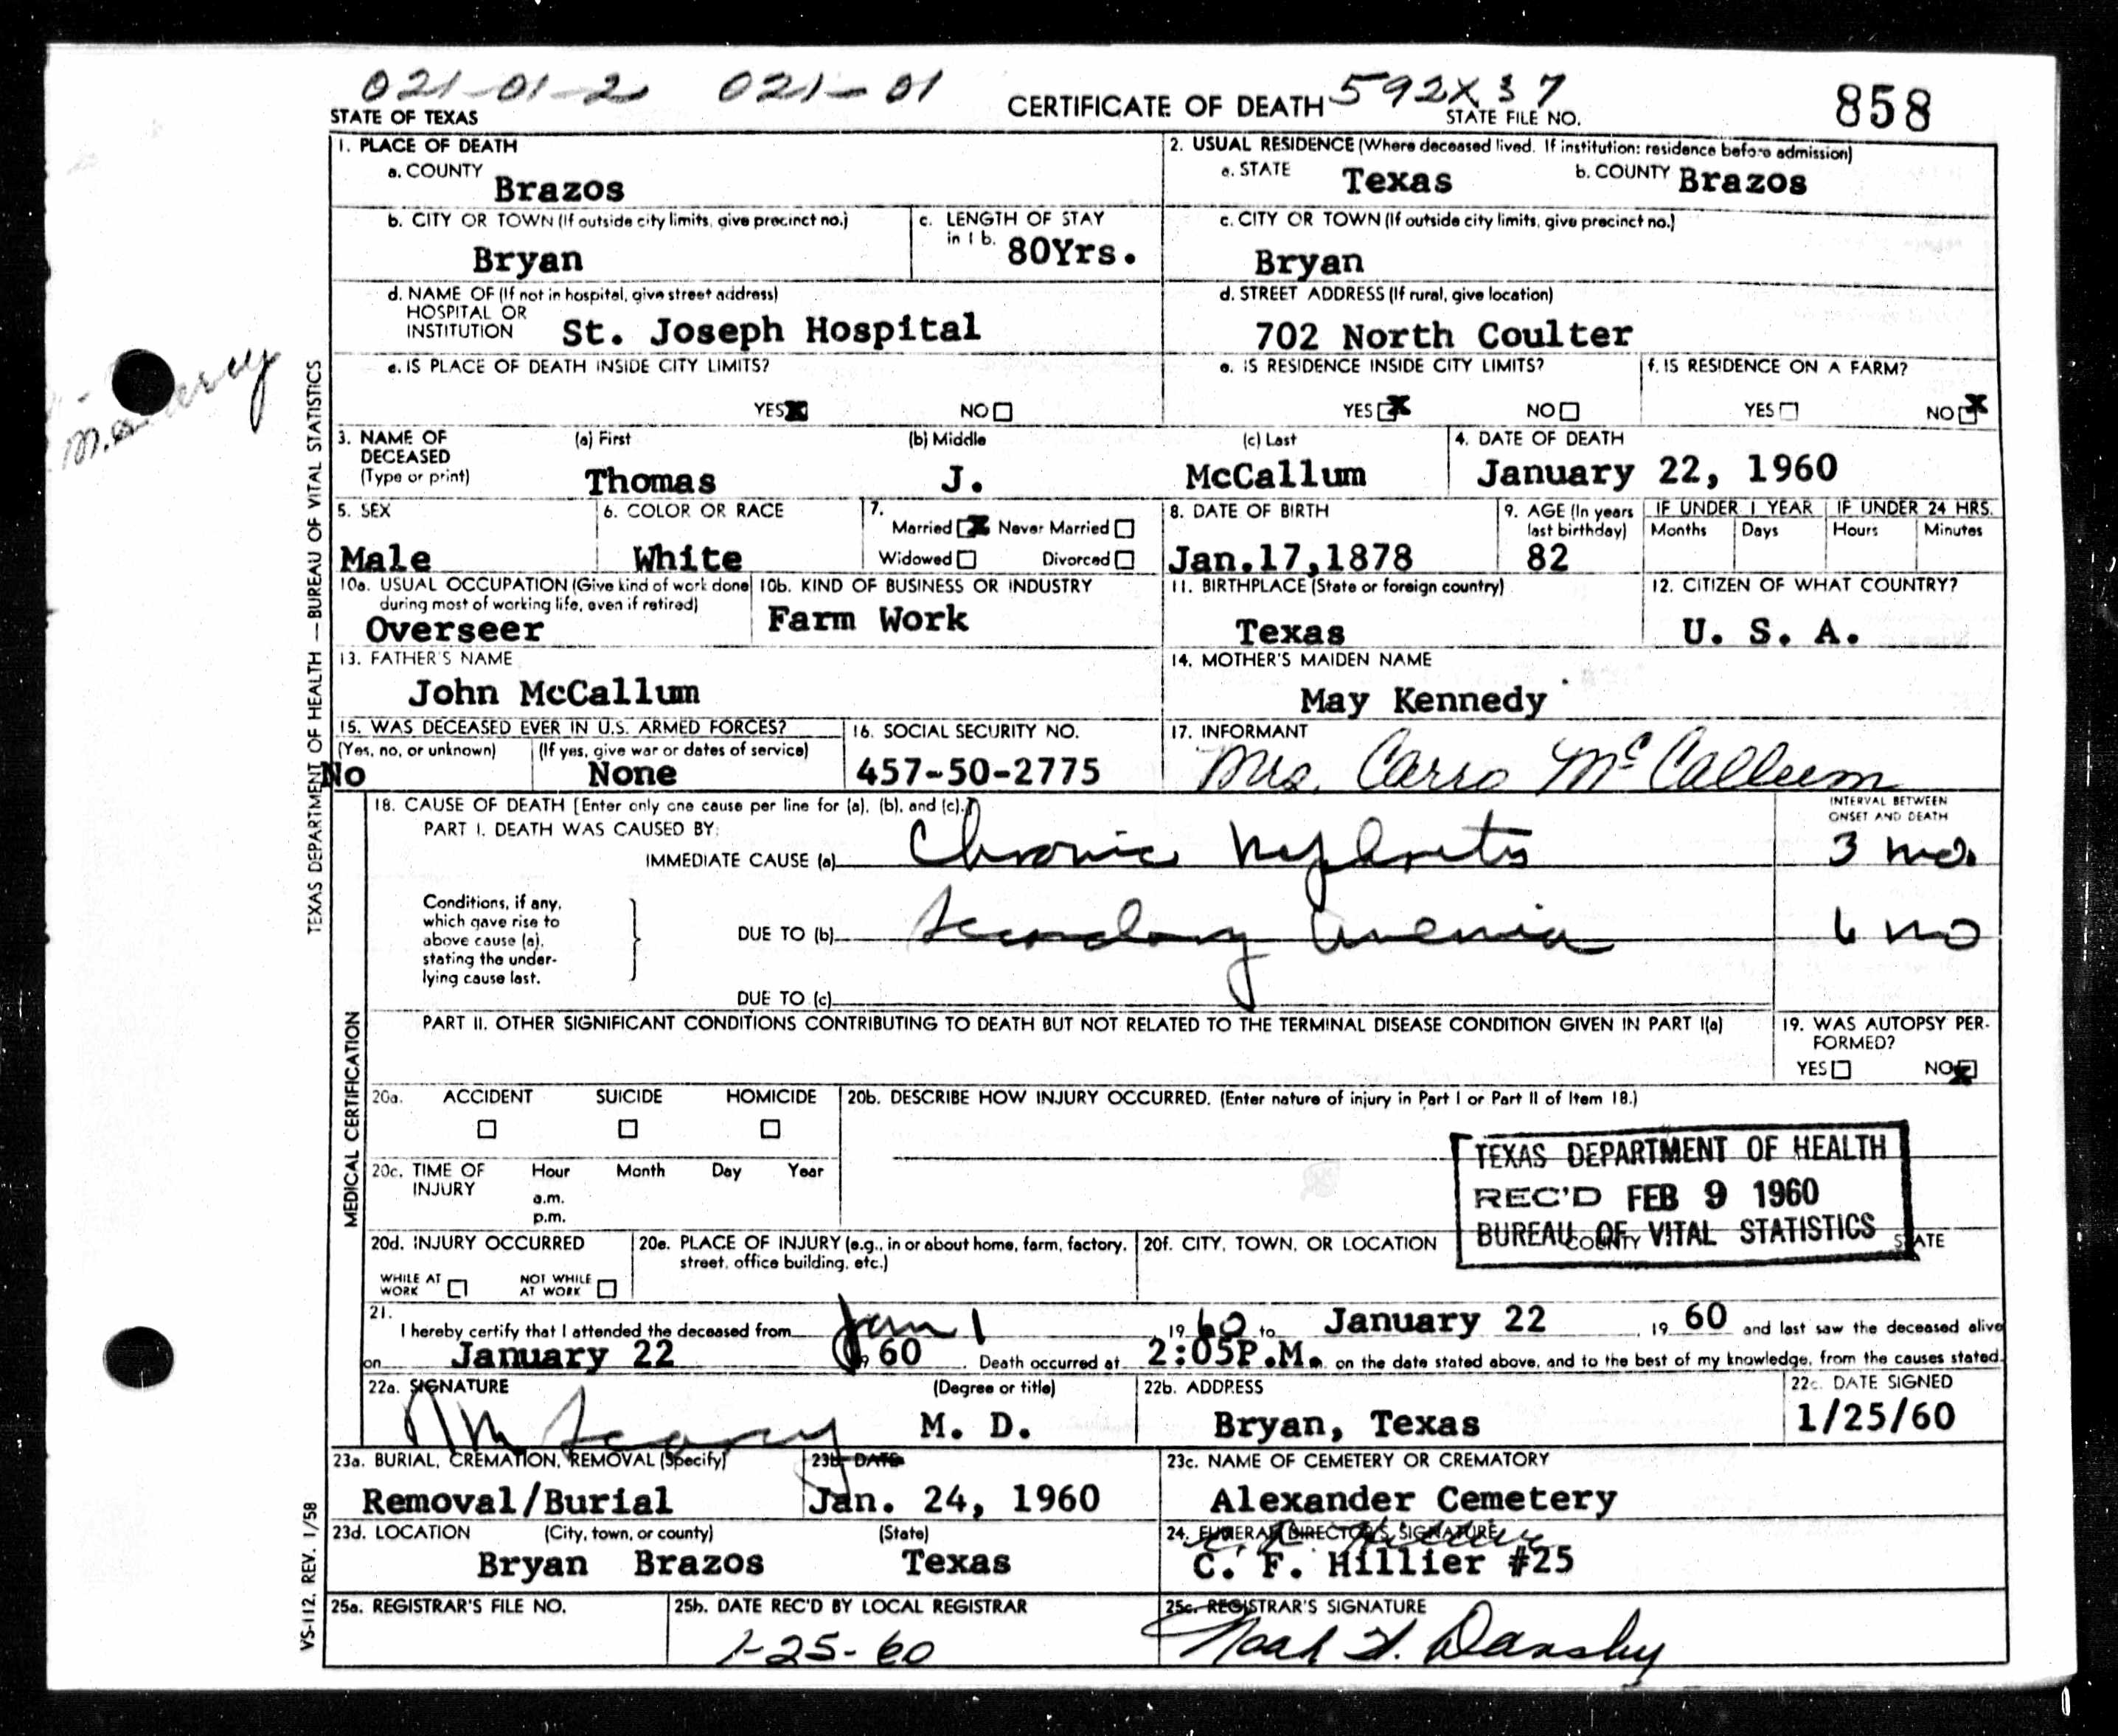 021-01-2 021-01 592X37
STATE OF TEXAS CERTIFICATE OF DEATH STATE FILE NO. 858
1. PLACE OF DEATH
a. COUNTY Brazos
2. USUAL RESIDENCE (Where deceased lived. If institution: residence before admission)
a. STATE Texas b. COUNTY Brazos
b. CITY OR TOWN (If outside city limits, give precinct no.)
Bryan
c. LENGTH OF STAY
in 1 b. 80Yrs.
c. CITY OR TOWN (If outside city limits, give precinct no.)
Bryan
d. NAME OF (If not in hospital, give street address)
HOSPITAL OR
INSTITUTION St. Joseph Hospital
d. STREET ADDRESS (If rural, give location)
702 North Coulter
e. IS PLACE OF DEATH INSIDE CITY LIMITS?
YES X NO
e. IS RESIDENCE INSIDE CITY LIMITS?
YES X NO
f. IS RESIDENCE ON A FARM?
YES NO X
3. NAME OF
DECEASED
(Type or print)
(a) First (b) Middle (c) Last
Thomas J. McCallum
4. DATE OF DEATH
January 22, 1960
5. SEX
Male
6. COLOR OR RACE
White
7.
Married X Never Married
Widowed Divorced
8. DATE OF BIRTH
Jan.17,1878
9. AGE (In years
last birthday)
82
IF UNDER 1 YEAR
Months Days
IF UNDER 24 HRS.
Hours Minutes
10a. USUAL OCCUPATION (Give kind of work done
during most of working life, even if retired)
Overseer
10b. KIND OF BUSINESS OR INDUSTRY
Farm Work
11. BIRTHPLACE (State or foreign country)
Texas
12. CITIZEN OF WHAT COUNTRY?
U. S. A.
13. FATHER'S NAME
John McCallum
14. MOTHER'S MAIDEN NAME
May Kennedy
15. WAS DECEASED EVER IN U.S. ARMED FORCES?
(Yes, no, or unknown) (If yes, give war or dates of service)
No None
16. SOCIAL SECURITY NO.
457-50-2775
17. INFORMANT
Mrs. Carro McCallum
18. CAUSE OF DEATH [Enter only one cause per line for (a), (b), and (c).]
INTERVAL BETWEEN
ONSET AND DEATH
PART I. DEATH WAS CAUSED BY:
IMMEDIATE CAUSE (a) Chronic Nephritis 3 mo.
Conditions, if any,
which gave rise to
above cause (a),
stating the under-
lying cause last.
DUE TO (b) Secondary Anemia 6 mo
DUE TO (c)
PART II. OTHER SIGNIFICANT CONDITIONS CONTRIBUTING TO DEATH BUT NOT RELATED TO THE TERMINAL DISEASE CONDITION GIVEN IN PART I(a)
19. WAS AUTOPSY PER-
FORMED?
YES NO X
20a. ACCIDENT SUICIDE HOMICIDE
20b. DESCRIBE HOW INJURY OCCURRED. (Enter nature of injury in Part I or Part II of Item 18.)
20c. TIME OF
INJURY
Hour Month Day Year
a.m.
p.m.
TEXAS DEPARTMENT OF HEALTH
REC'D FEB 9 1960
BUREAU OF VITAL STATISTICS
20d. INJURY OCCURRED
WHILE AT
WORK
NOT WHILE
AT WORK
20e. PLACE OF INJURY (e.g., in or about home, farm, factory,
street, office building, etc.)
20f. CITY, TOWN, OR LOCATION COUNTY STATE
21.
I hereby certify that I attended the deceased from Jan 1, 1960 to January 22, 1960 and last saw the deceased alive
on January 22 1960. Death occurred at 2:05P.M. on the date stated above, and to the best of my knowledge, from the causes stated.
22a. SIGNATURE (Degree or title)
M. D.
22b. ADDRESS
Bryan, Texas
22c. DATE SIGNED
1/25/60
23a. BURIAL, CREMATION, REMOVAL (Specify)
Removal/Burial
23b. DATE
Jan. 24, 1960
23c. NAME OF CEMETERY OR CREMATORY
Alexander Cemetery
23d. LOCATION (City, town, or county) (State)
Bryan Brazos Texas
24. FUNERAL DIRECTOR'S SIGNATURE
C. F. Hillier #25
25a. REGISTRAR'S FILE NO.
25b. DATE REC'D BY LOCAL REGISTRAR
1-25-60
25c. REGISTRAR'S SIGNATURE
Noah H. Dansby
TEXAS DEPARTMENT OF HEALTH — BUREAU OF VITAL STATISTICS
MEDICAL CERTIFICATION
VS-112. REV. 1/58